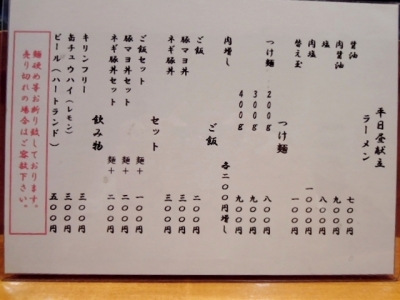 平日昼献立
ラーメン
醤油 七〇〇円
肉醤油 九〇〇円
塩 八〇〇円
肉塩 一〇〇〇円
替え玉 一〇〇円
つけ麺
つけ麺 200g 八〇〇円
300g 九〇〇円
400g 九〇〇円
肉増し 各二〇〇円増し
ご飯
ご飯 二〇〇円
豚マヨ丼 三〇〇円
ネギ豚丼 三〇〇円
セット
ご飯セット 麺+ 一〇〇円
豚マヨ丼セット 麺+ 二〇〇円
ネギ豚丼セット 麺+ 二〇〇円
飲み物
キリンフリー 三〇〇円
缶チュウハイ(レモン) 三〇〇円
ビール(ハートランド) 五〇〇円
麺硬め等お断り致しております。
売り切れの場合はご容赦下さい。